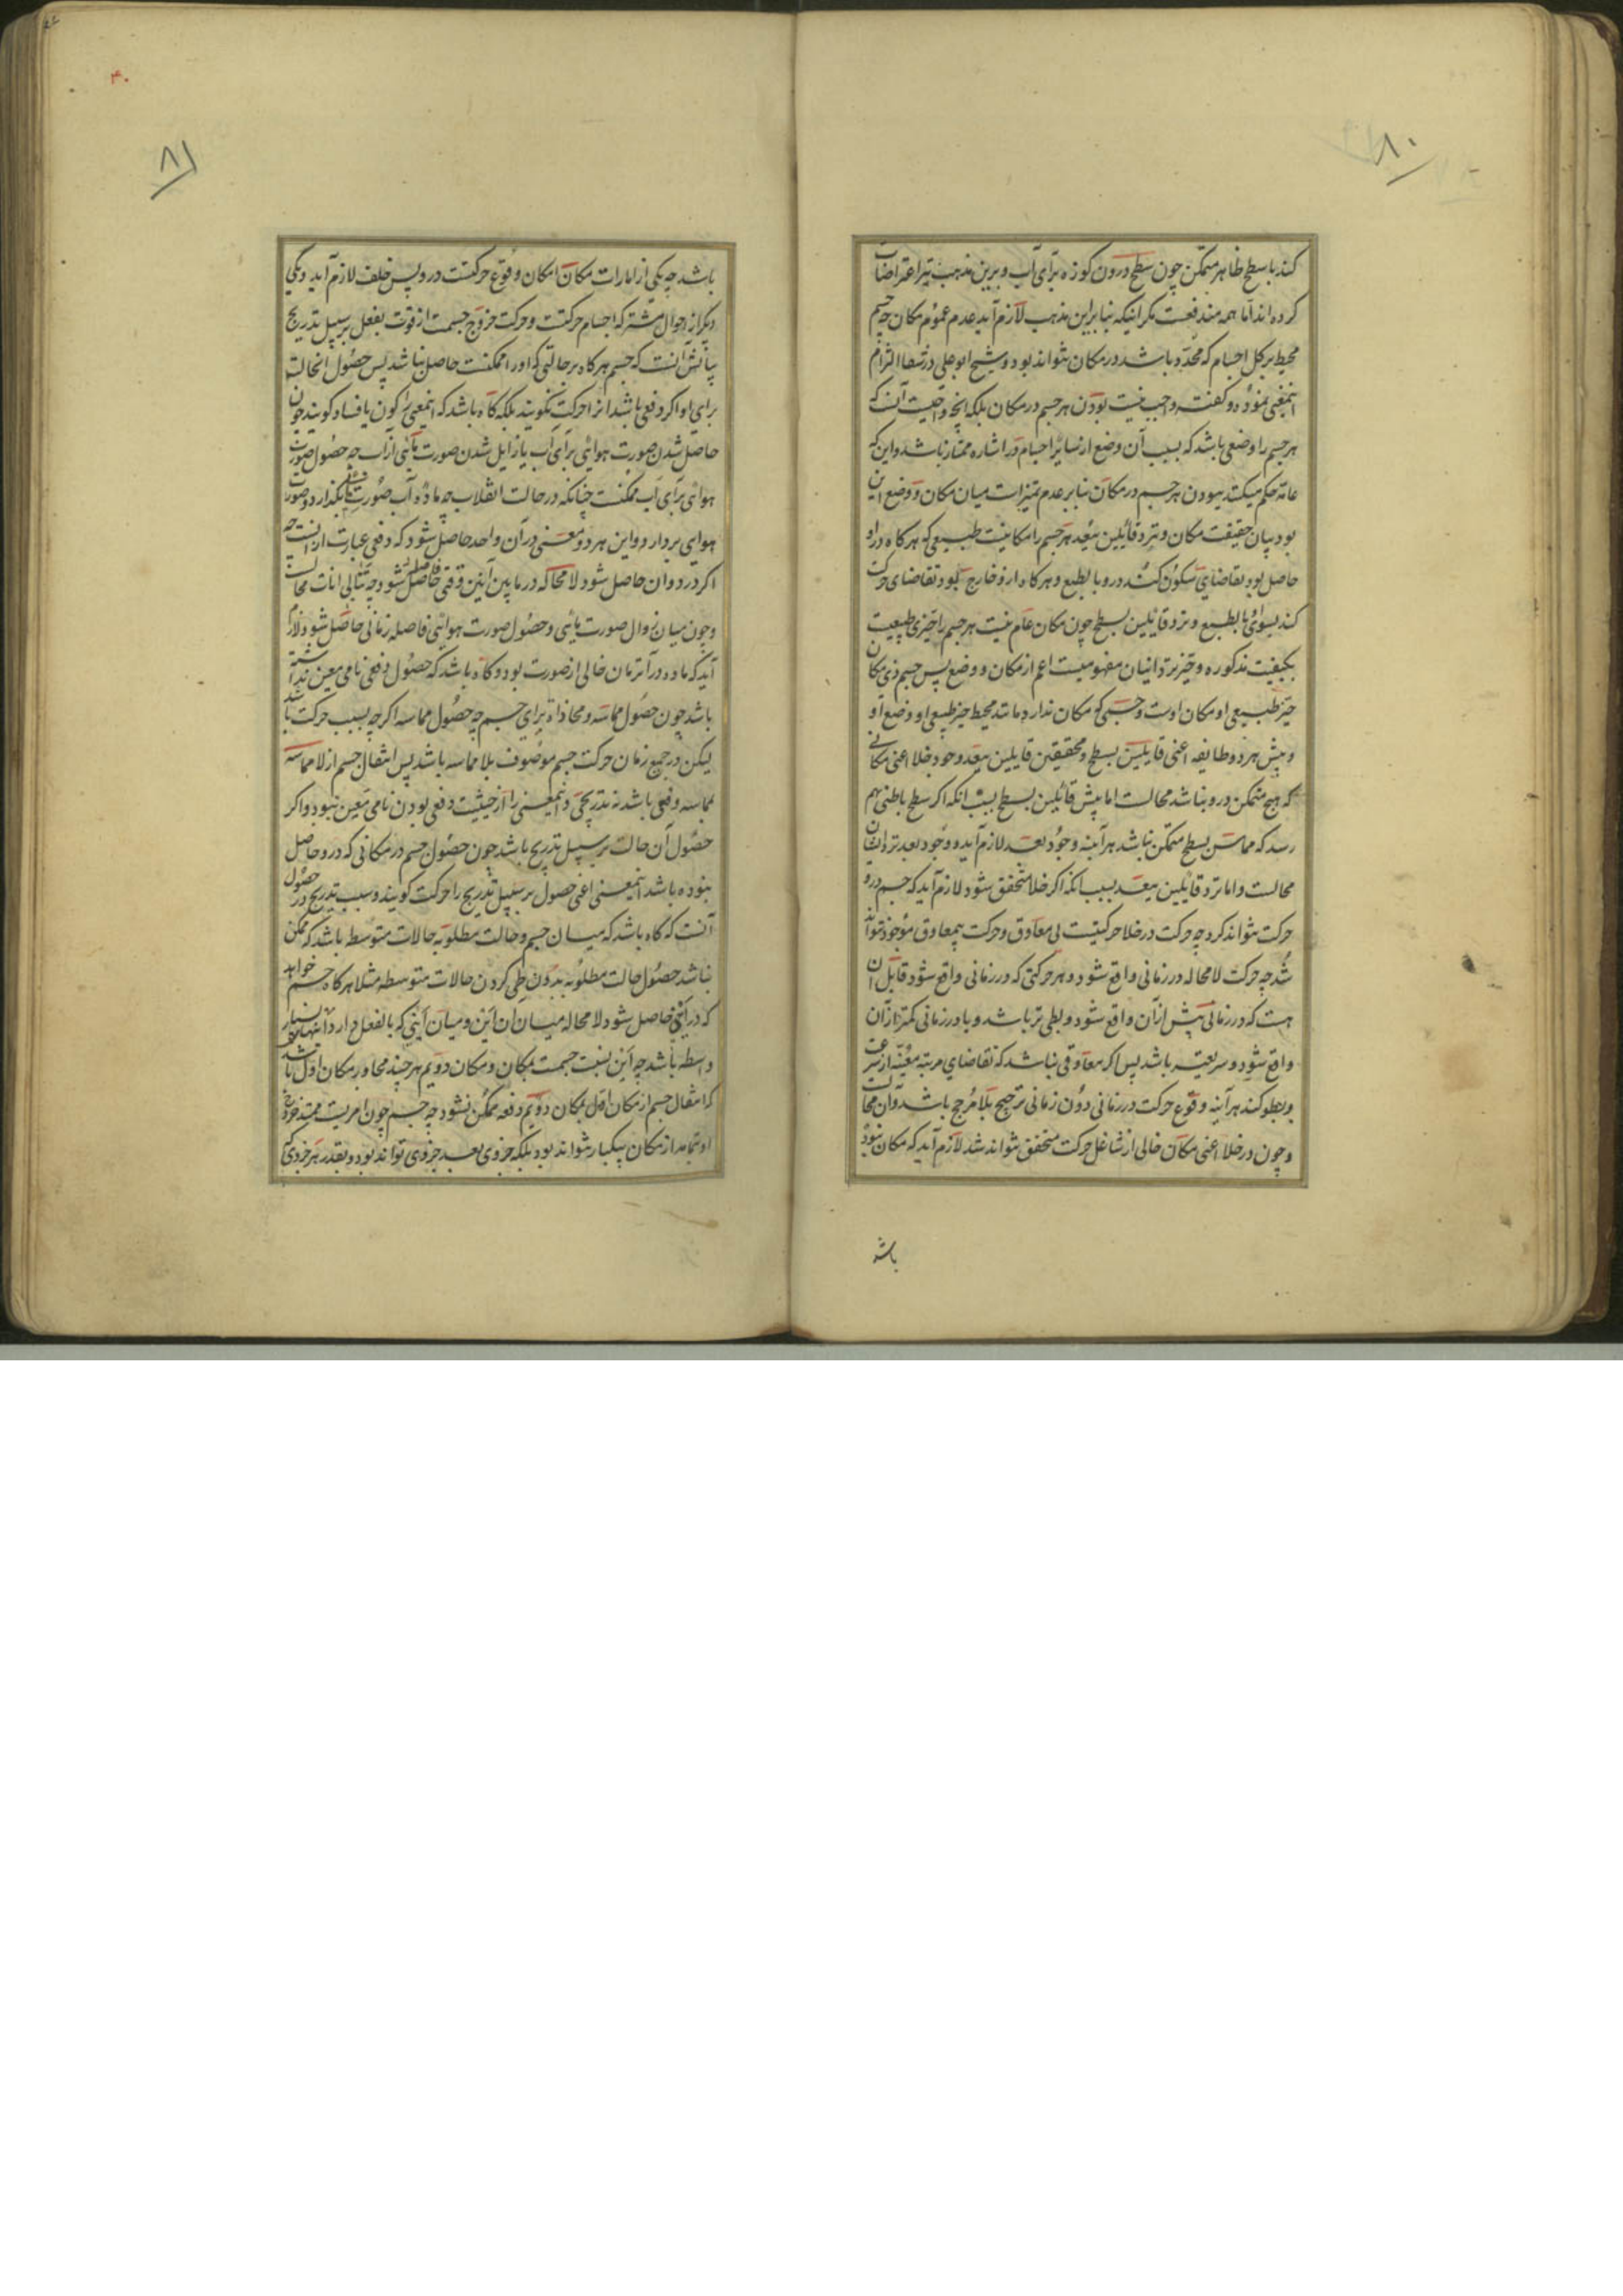 ۸۰
کند با سطح ظاهر متمکن چون سطح درون کوزه برای آب و برین مذهب نیز اعتراضات
کرده‌اند اما همه مندفعست مگر اینکه بنابراین مذهب لازم آید عدم عموم مکان چه جسم
محیط بر کل اجسام که محدد باشد در مکان نتواند بود و شیخ ابوعلی در شفا التزام
اینمعنی نموده و گفته واجب نیست بودن هر جسم در مکان بلکه آنچه واجبست آنست که
هر جسم را وضعی باشد که بسبب آن وضع از سایر اجسام در اشاره ممتاز باشد و این که
عامه حکم میکنند ببودن هر جسم در مکان بنابر عدم تمیزات میان مکان و وضع این
بود بیان حقیقت مکان و نزد قائلین ببعد هر جسم را مکانیست طبیعی که هرگاه در او
حاصل بود تقاضای سکون کند درو بالطبع و هرگاه ازو خارج بود تقاضای حرکت
کند بسوی او بالطبع و نزد قائلین بسطح چون مکان عام نیست هر جسم را حیزی طبیعیست
بکیفیت مذکوره و حیز نزد اینان مفهومیست اعم از مکان و وضع پس جسم ذی مکان
حیز طبیعی او مکان اوست و جسمی که مکان ندارد مانند محیط حیز طبیعی او وضع او
و پیش هر دو طایفه اعنی قایلین بسطح و محققین قایلین ببعد وجود خلا اعنی مکانی
که هیچ متمکن درو نباشد محالست اما پیش قائلین بسطح بسبب انکه اگر سطح باطنی بهم
رسد که مماس بسطح متمکن نباشد هرآینه وجود بعد لازم آید و وجود بعد نزد ایشان
محالست و اما نزد قایلین ببعد بسبب انکه اگر خلا متحقق شود لازم آید که جسم درو
حرکت نتواند کرد چه حرکت در خلا حرکتیست بی معاوق و حرکت بیمعاوق موجود نتواند
شد چه حرکت لامحاله در زمانی واقع شود و هر حرکتی که در زمانی واقع شود قابل آن
هست که در زمانی بیش از آن واقع شود و بطی تر باشد و یا در زمانی کمتر از آن
واقع شود و سریعتر باشد پس اگر معاوقی نباشد که تقاضای مرتبه معینه از سرعت
و بطو کند هرآینه وقوع حرکت در زمانی دون زمانی ترجیح بلامرجح باشد و آن محالست
و چون در خلا اعنی مکان خالی از شاغل حرکت متحقق نتواند شد لازم آید که مکان نبوده
باشد
۸۱
۴۰
باشد چه یکی از امارات مکان امکان وقوع حرکتست درو پس خلف لازم آید و یکی
دیگر از احوال مشترکه اجسام حرکتست و حرکت خروج جسمست از قوت بفعل بر سبیل تدریج
بیانش آنست که جسم هرگاه بر حالتی که او را ممکنست حاصل نباشد پس حصول انحالت
برای او اگر دفعی باشد انرا حرکت نگویند بلکه گاه باشد که اینمعنی را کون یا فساد گویند چون
حاصل شدن صورت هوائی برای آب یا زایل شدن صورت مائی از آب چه حصول صورت
هوائی برای آب ممکنست چنانکه در حالت انقلاب چه ماده آب صورت مائی بگذارد و صورت
هوای بردارد و این هر دو معنی در آن واحد حاصل شود که دفعی عبارت از آنست چه
اگر در دو ان حاصل شود لامحاله در مابین آنین وقتی فاصل شود چه تتالی انات محالست
و چون میان زوال صورت مائی و حصول صورت هوائی فاصله زمانی حاصل شود لازم
آید که ماده در آنزمان خالی از صورت بود و گاه باشد که حصول دفعی نامی معین نداشته
باشد چون حصول مماسه و محاذاة برای جسم چه حصول مماسه اگرچه بسبب حرکت باشد
لیکن در جمیع زمان حرکت جسم موصوف بلا مماسه باشد پس انتقال جسم از لا مماسه
بمماسه دفعی باشد نه تدریجی و اینمعنی را از حیثیت دفعی بودن نامی معین نبود و اگر
حصول آن حالت بر سبیل تدریج باشد چون حصول جسم در مکانی که درو حاصل
نبوده باشد اینمعنی اعنی حصول بر سبیل تدریج را حرکت گویند و سبب تدریج در حصول
آنست که گاه باشد که میان جسم و حالت مطلوبه حالات متوسطه باشد که ممکن
نباشد حصول حالت مطلوبه بدون طی کردن حالات متوسطه مثلا هرگاه جسم خواهد
که در اینی حاصل شود لامحاله میان ان این و میان اینی که بالفعل دارد
واسطه باشد چه این نسبت جسمست بمکان و مکان دویم هر چند مجاور مکان اول باشد
که انتقال جسم از مکان اول بمکان دویم دفعه ممکن نشود چه جسم چون امریست ممتد خروج
او بتمامه از مکان بیکبار نتواند بود بلکه جزوی بعد جزوی تواند بود و بقدر هر جزوی